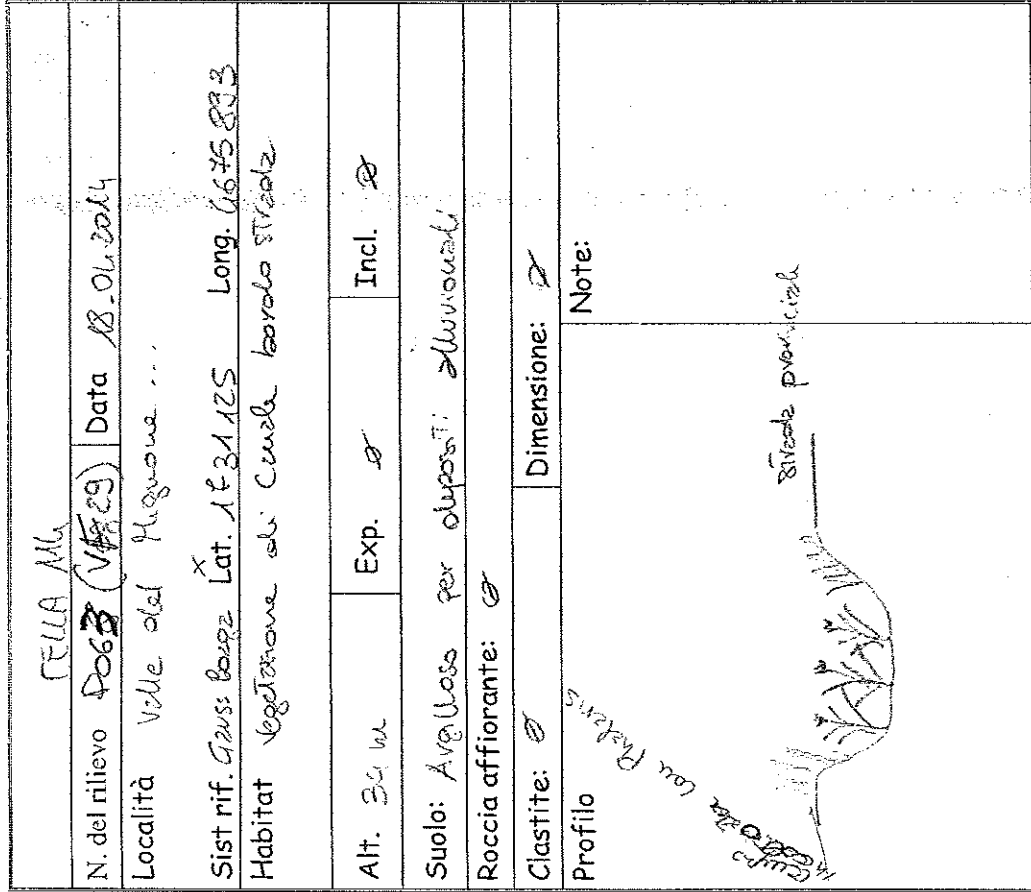 CELLA M4
N. del rilievo P063 (VF29) Data 18.04.2014
Località Valle del Mignone...
Sist rif. Gauss Boaga Lat. X 1731125 Long. 4675833
Habitat Vegetazione di Canale bordo strada
Alt. 34 m Exp. Ø Incl. Ø
Suolo: Argilloso per depositi alluvionali
Roccia affiorante: Ø
Clastite: Ø Dimensione: Ø
Profilo Note:
con Phalaris
strada provinciale